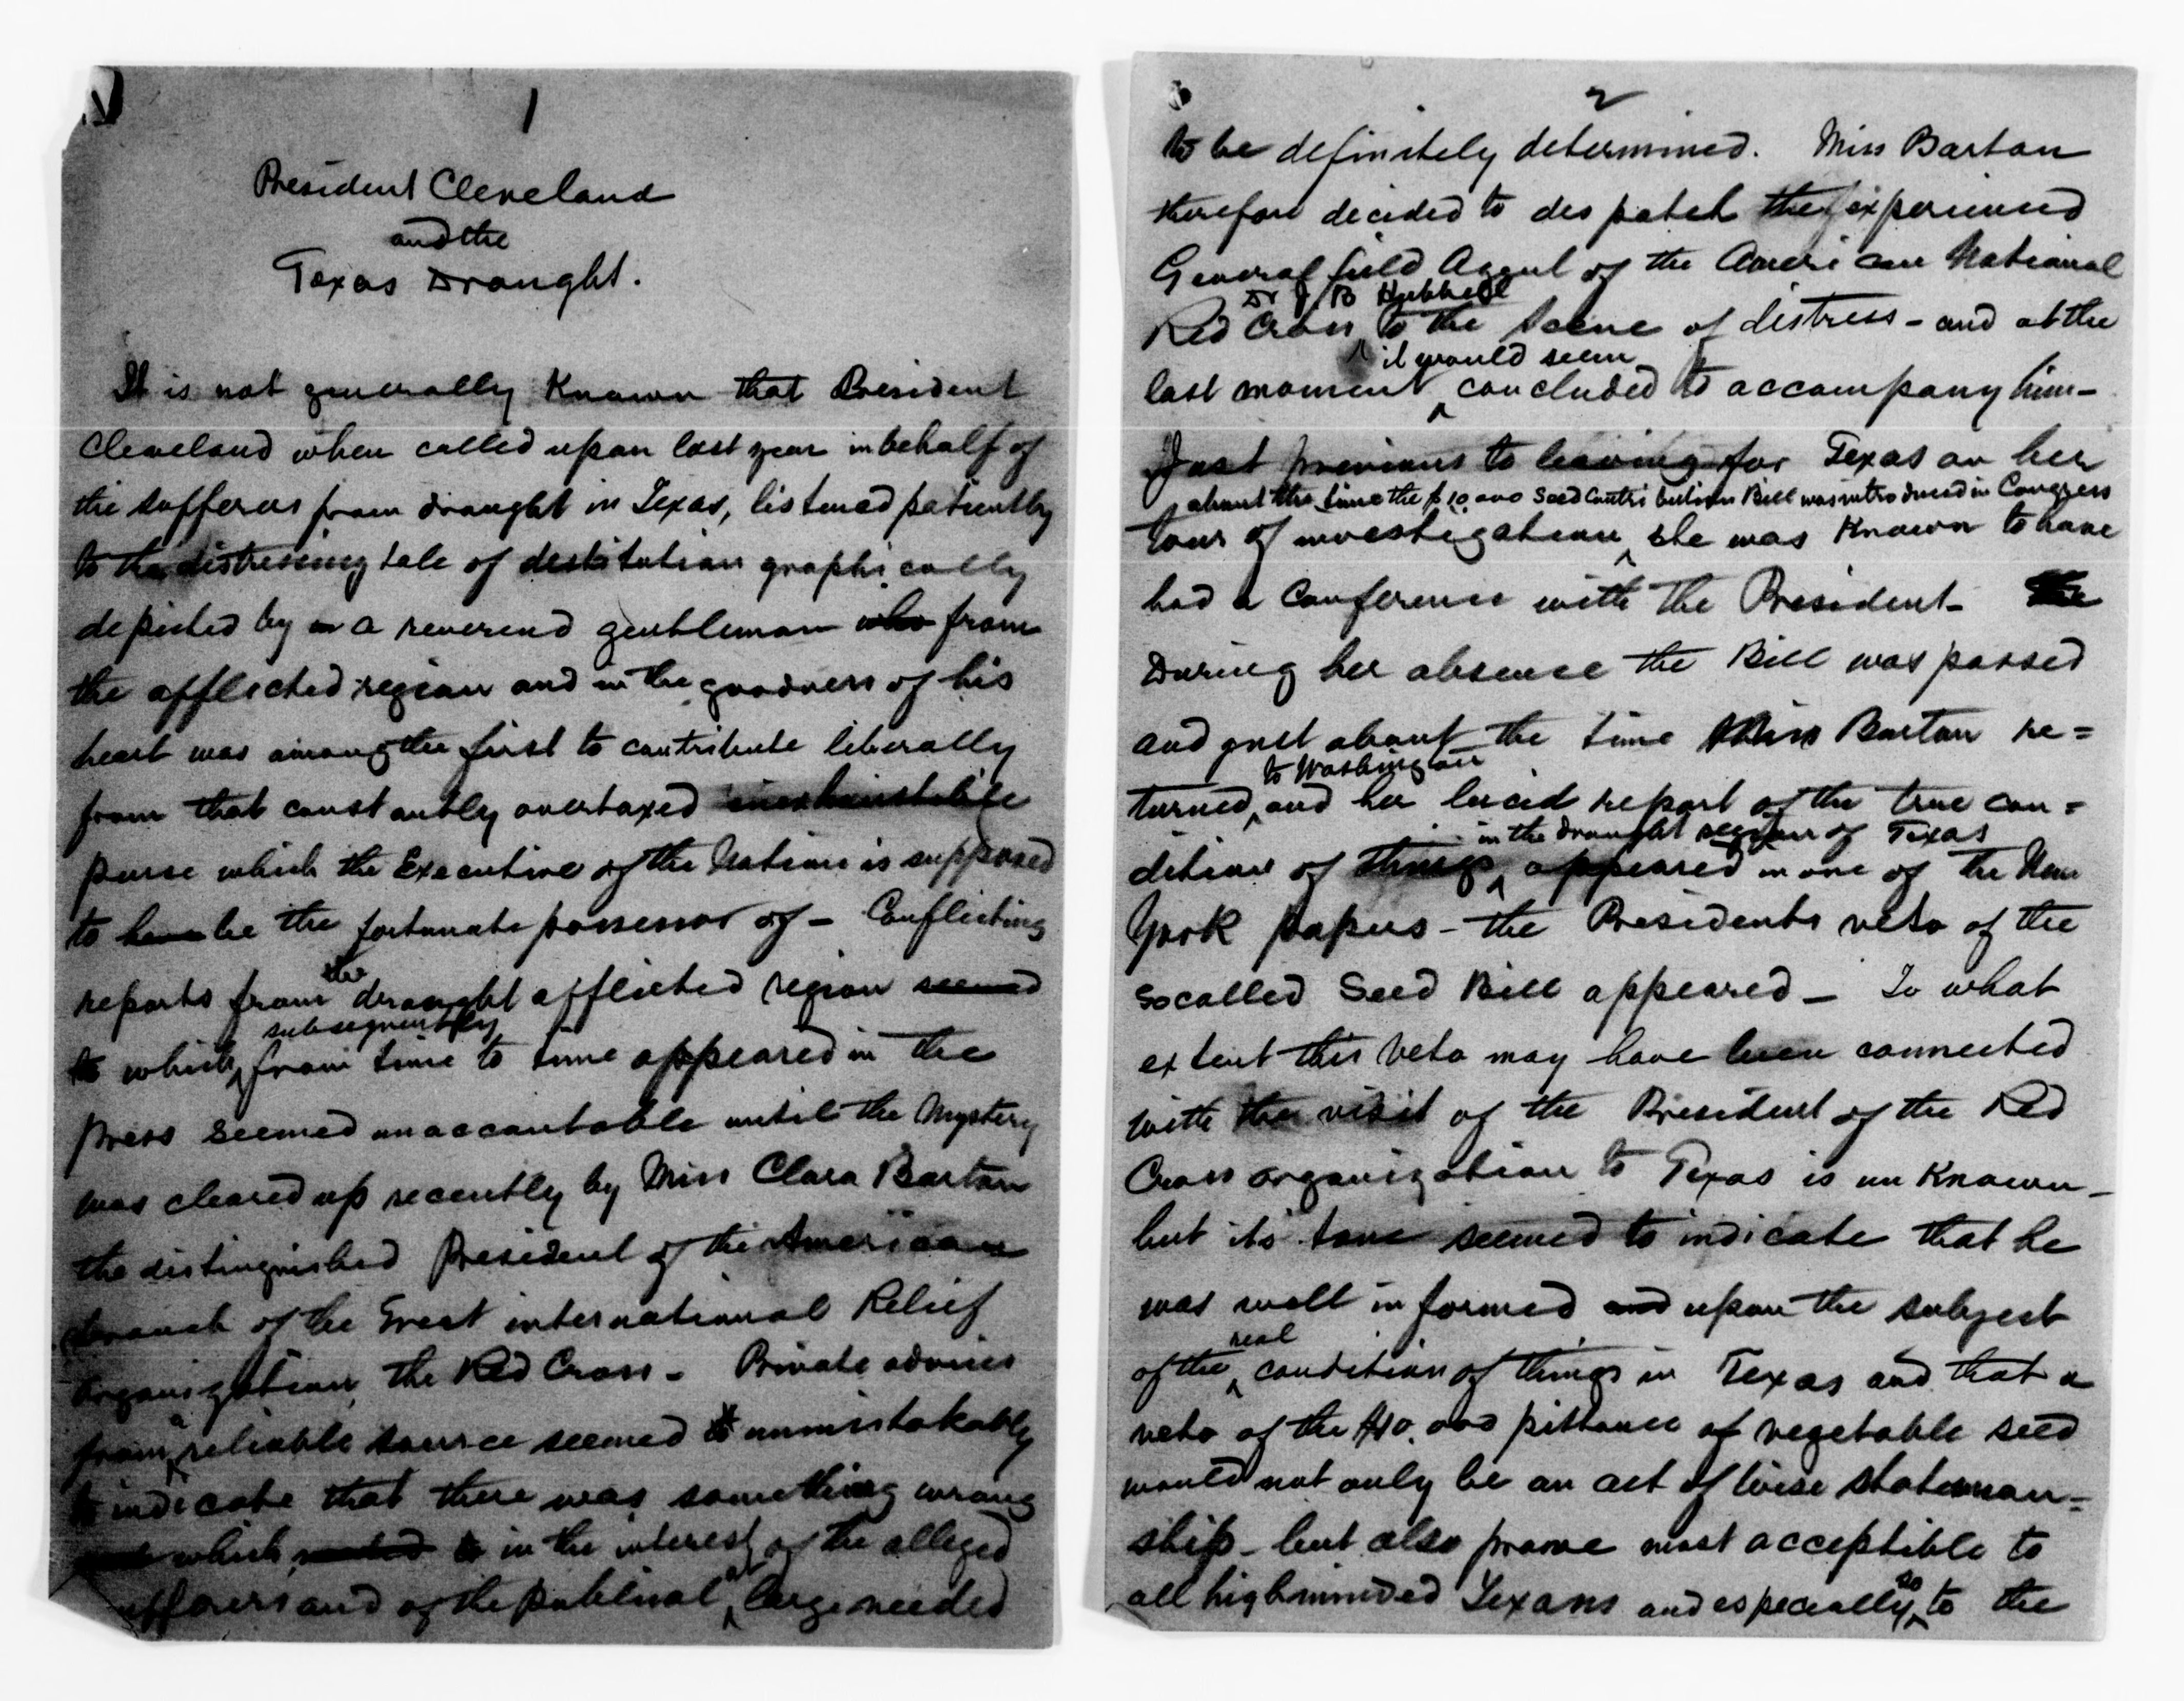 1
President Cleveland
and the
Texas Drought.
It is not generally Known that President
Cleveland when called upon last year in behalf of
the sufferers from drought in Texas, listened patiently
to the distressing tale of destitution graphically
depicted by a reverend gentleman who from
the afflicted region and in the goodness of his
heart was among the first to contribute liberally
from that constantly overtaxed inexhaustible
purse which the Executive of the Nation is supposed
to have be the fortunate possessor of - Conflicting
the
reports from drought afflicted region seemed
subsequently
to which from time to time appeared in the
press seemed unaccountable until the Mystery
was cleared up recently by Miss Clara Barton
the distinguished President of the American
branch of the Great international Relief
Organization, the Red Cross - Private advices
a
from reliable source seemed to unmistakably
to indicate that there was something wrong
which needed to in the interest of the alleged
at
sufferers and of the public large needed
2
to be definitely determined. Miss Barton
therefore decided to despatch the experienced
General field Agent of the American National
Dr J. B Hubbell
Red Cross to the scene of distress - and at the
it would seem
last moment concluded to accompany him -
Just previous to leaving for Texas on her
about the time the $10,000 Seed Contribution Bill was introduced in Congress
tour of investigation she was Known to have
had a Conference with the President - The
During her absence the Bill was passed
and just about the time Miss Barton re=
to Washington
turned, and her lucid report of the true con=
in the drought region of Texas
dition of things appeared in one of the New
York papers - the Presidents veto of the
socalled Seed Bill appeared - To what
extent this Veto may have been connected
with the visit of the President of the Red
Cross organization to Texas is un Known -
but its tone seemed to indicate that he
was well informed and upon the subject
real
of the condition of things in Texas and that a
veto of the $10,000 pittance of vegetable seed
would not only be an act of wise statesman=
ship - but also prove most acceptible to
so
all highminded Texans and especially to the